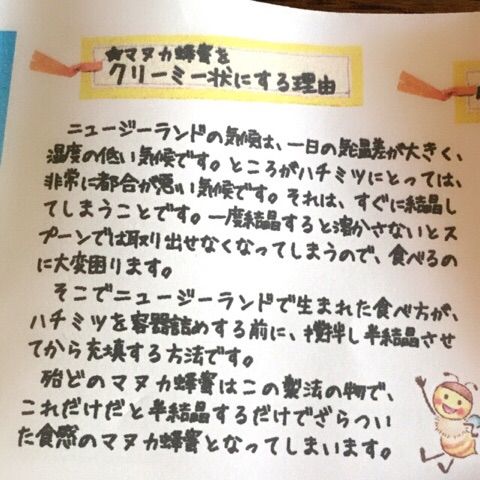 ★マヌカ蜂蜜を
クリーミー状にする理由
ニュージーランドの気候は、一日の気温差が大きく、
湿度の低い気候です。ところがハチミツにとっては、
非常に都合が悪い気候です。それは、すぐに結晶し
てしまうことです。一度結晶すると溶かさないとス
プーンでは取り出せなくなってしまうので、食べるの
に大変困ります。
そこでニュージーランドで生まれた食べ方が、
ハチミツを容器詰めする前に、撹拌し半結晶させ
てから充填する方法です。
殆どのマヌカ蜂蜜はこの製法の物で、
これだけだと半結晶するだけでざらつい
た食感のマヌカ蜂蜜となってしまいます。